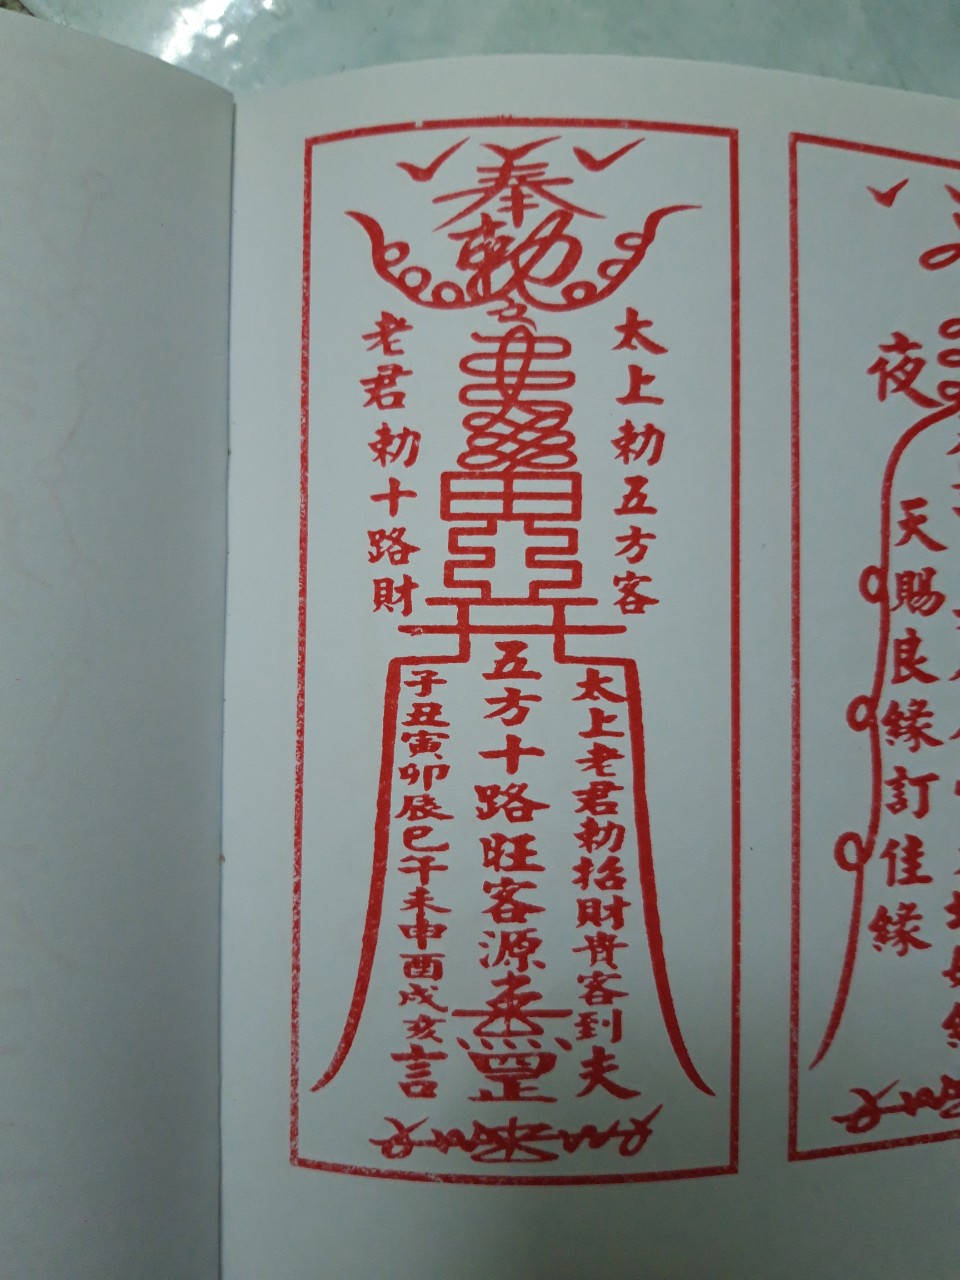 奉
勅
太上勅五方客
老君勅十路財
太上老君勅招財貴客到夫
五方十路旺客源
子丑寅卯辰巳午未申酉戌亥言
罡
夜
天賜良緣訂佳緣